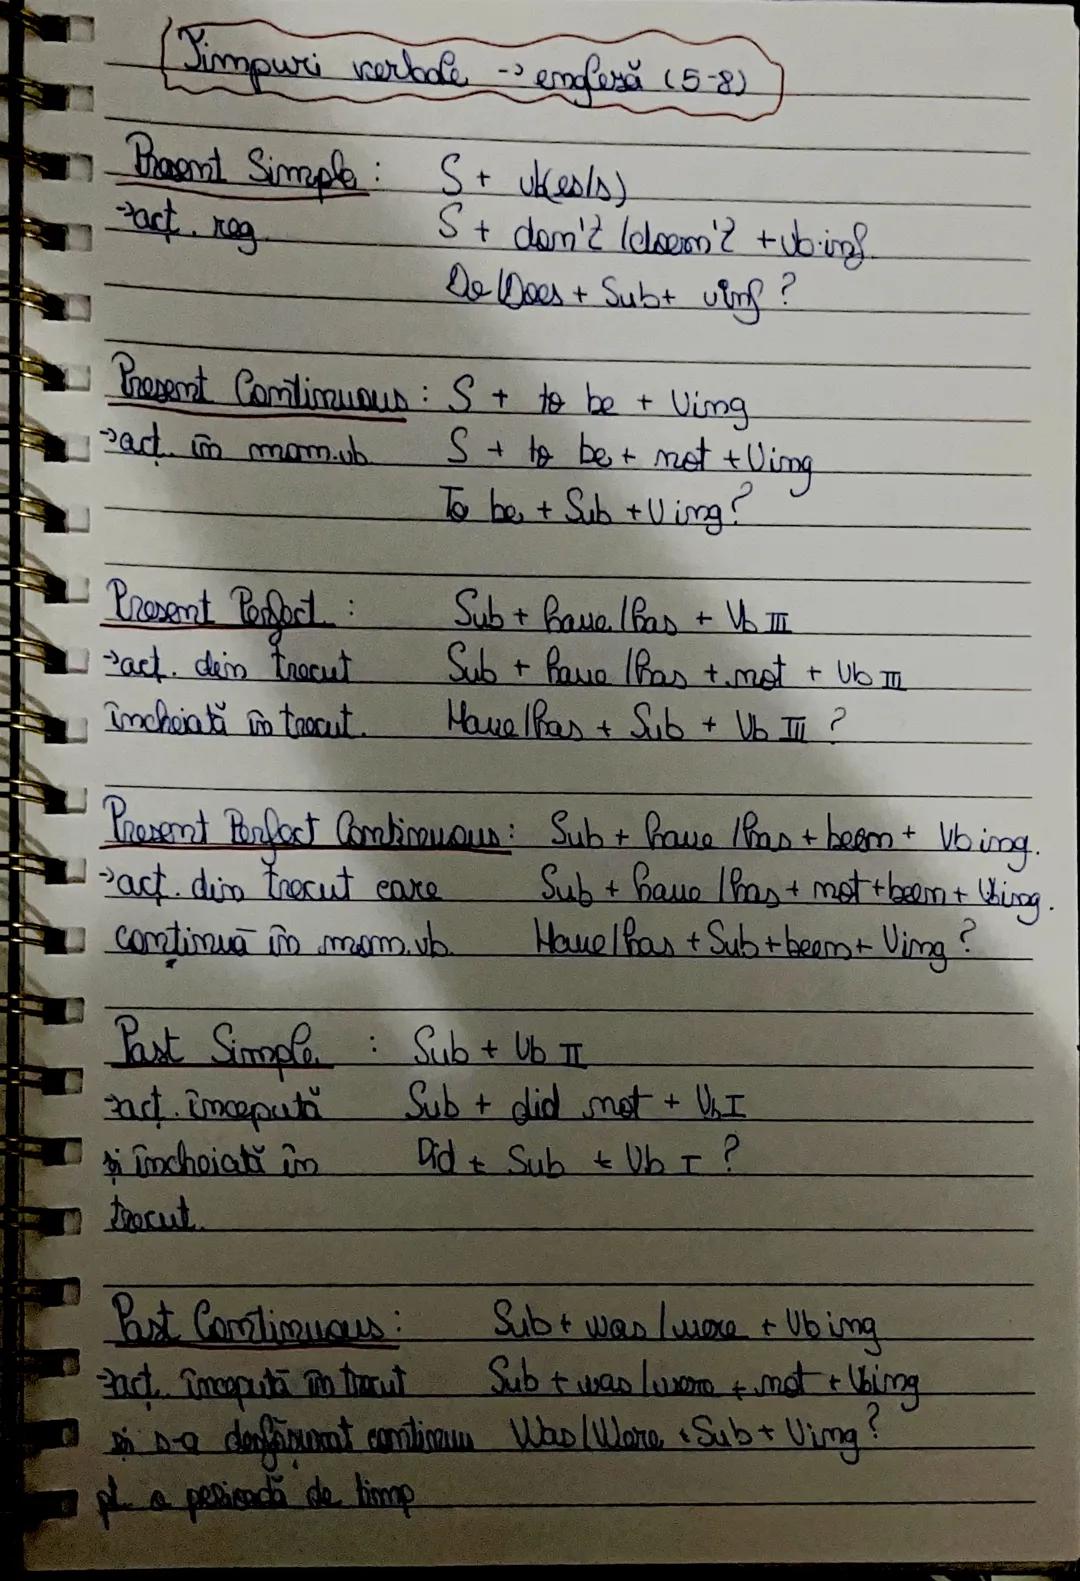 Timpuri verbale -> engleză (5-8)
Present Simple: S + vb(es/s)
->act. reg S + don't/doesn't + vb.inf.
Do/Does + Sub + vinf?
Present Continuous: S + to be + Ving
->act. în mom.vb S + to be + not + Ving
To be + Sub + Ving?
Present Perfect: Sub + have/has + Vb III
->act. din trecut Sub + have/has + not + Vb III
încheiată în trecut. Have/has + Sub + Vb III ?
Present Perfect Continuous: Sub + have/has + been + Vbing.
->act. din trecut care Sub + have/has + not + been + Vbing.
continuă în mom.vb. Have/has + Sub + been + Ving?
Past Simple : Sub + Vb II
->act. începută Sub + did not + Vb I
și încheiată în Did + Sub + Vb I ?
trecut.
Past Continuous: Sub + was/were + Vbing
->act. începută în trecut Sub + was/were + not + Vbing
și s-a desfășurat continuu Was/Were + Sub + Ving?
pt. o perioadă de timp